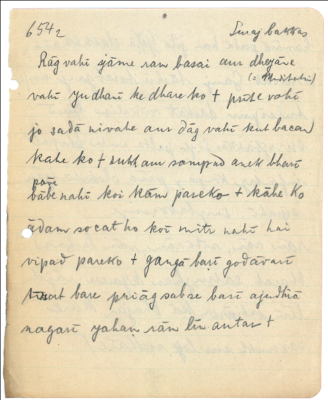 654 2 Suraj bakhas
Rāg vahī jāme ran basai aur dhejāve
(= Yudhisthir)
vahī yudhānī ke dhare ko + prite vahī
jo sadā nivahe aur dāg vahī kut bacan
kahe ko + sukh aur sampad anek bharī
pāve
nahī koi kām pareko + kāhe ko
ādam socat ho koi mitr nahī hai
vipad pareko + gangā baṛī godāvarī
baṛe priāg sabse baṛī ajudhiā
nagarī yahaṇ rām līn autar +